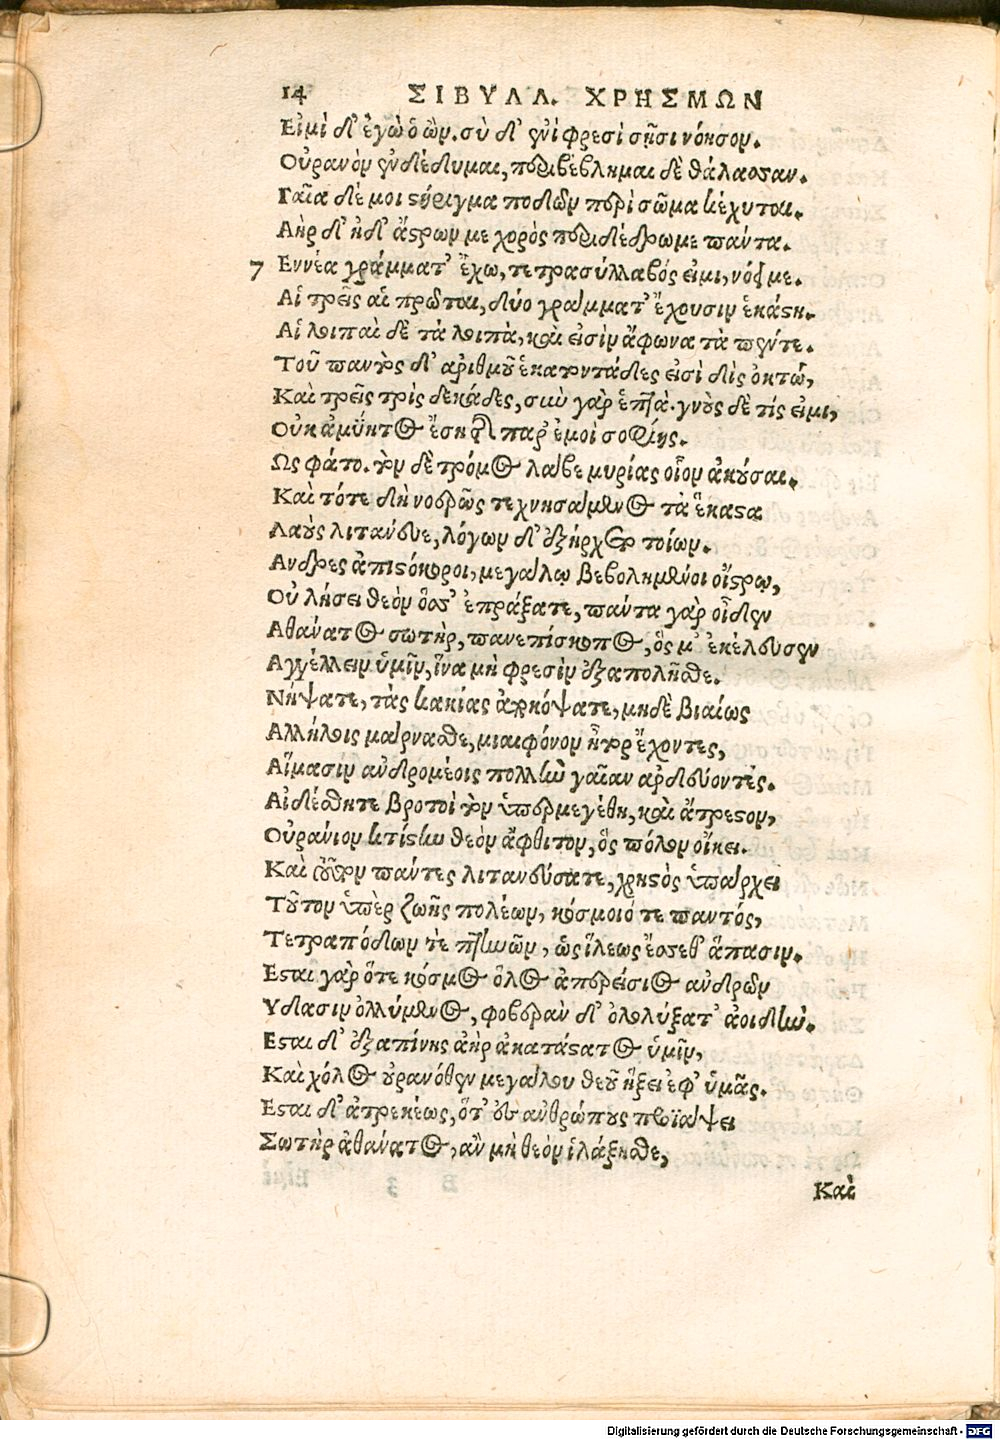 14 ΣΙΒΥΛΛ. ΧΡΗΣΜΩΝ
Εἰμὶ δ' ἐγὼ ὁ ὤν. σὺ δ' ἐνὶ φρεσὶ σῇσι νόησον.
Οὐρανὸν ἐνδέδυμαι, περιβέβλημαι δὲ θάλασσαν.
Γαῖα δέ μοι στήριγμα ποδῶν περὶ σῶμα κέχυται.
Αὴρ δ' ἠδ' ἄστρων με χορὸς περιδέδρομε πάντα.
7 Εννέα γράμματ' ἔχω, τετρασύλλαβός εἰμι, νόει με.
Αἱ τρεῖς αἱ πρῶται, δύο γράμματ' ἔχουσιν ἑκάστη.
Αἱ λοιπαὶ δὲ τὰ λοιπὰ, καὶ εἰσὶν ἄφωνα τὰ πέντε.
Τοῦ παντὸς δ' ἀριθμοῦ ἑκατοντάδες εἰσὶ δὶς ὀκτώ,
Καὶ τρεῖς τρὶς δεκάδες, σὺν γὰρ ἑπτά. γνοὺς δὲ τίς εἰμι,
Οὐκ ἀμύητος ἔσῃ τῆς παρ' ἐμοὶ σοφίης.
Ως φάτο. τὸν δὲ τρόμος λάβε μυρίας οἷον ἀκούσαι.
Καὶ τότε δὴ νοερῶς τεχνησάμενος τὰ ἕκαστα
Λαοὺς λιτάνευε, λόγων δ' ἐξήρχετο τοίων.
Ανδρες ἀπιστόκοροι, μεγάλῳ βεβολημένοι οἴστρῳ,
Οὐ λήσει θεὸν ὅσσ' ἐπράξατε, πάντα γὰρ οἶδεν
Αθάνατος σωτὴρ, πανεπίσκοπος, ὅς μ' ἐκέλευσεν
Αγγέλλειν ὑμῖν, ἵνα μὴ φρεσὶν ἐξαπολῆσθε.
Νήψατε, τὰς κακίας ἀποκόψατε, μηδὲ βιαίως
Αλλήλοις μάρνασθε, μιαιφόνον ἦτορ ἔχοντες,
Αἵμασιν ἀνδρομέοις πολλὴν γαῖαν ἀρδεύοντες.
Αἰδέσθητε βροτοὶ τὸν ὑπερμεγέθη, καὶ ἄτρεστον,
Οὐράνιον κτίστην θεὸν ἄφθιτον, ὃς πόλον οἴκει.
Καὶ τοῦτον πάντες λιτανεύσατε, χρηστὸς ὑπάρχει
Τοῦτον ὑπὲρ ζωῆς πολέων, κόσμοιό τε παντός,
Τετραπόδων τε πτηνῶν, ὡς ἵλεως ἔσσεθ' ἅπασιν.
Εσται γὰρ ὅτε κόσμος ὅλος ἀπειρέσιος ἀνδρῶν
Υδασιν ὀλλύμενος, φοβερὰν δ' ὀλολύξατ' ἀοιδήν.
Εσται δ' ἐξαπίνης ἀὴρ ἀκατάστατος ὑμῖν,
Καὶ χόλος οὐρανόθεν μεγάλου θεοῦ ἥξει ἐφ' ὑμᾶς.
Εσται δ' ἀτρεκέως, ὅτ' ἐπ' ἀνθρώπους προϊάψει
Σωτὴρ ἀθάνατος, ἂν μὴ θεὸν ἱλάξησθε,
Καὶ
Digitalisierung gefördert durch die Deutsche Forschungsgemeinschaft - DFG